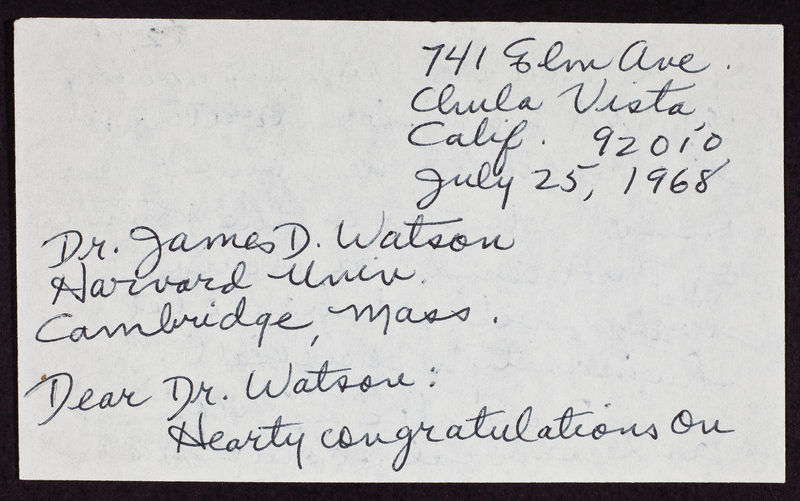 741 Elm Ave.
Chula Vista,
Calif. 92010
July 25, 1968
Dr. James D. Watson
Harvard Univ.
Cambridge, Mass.
Dear Dr. Watson:
Hearty congratulations on